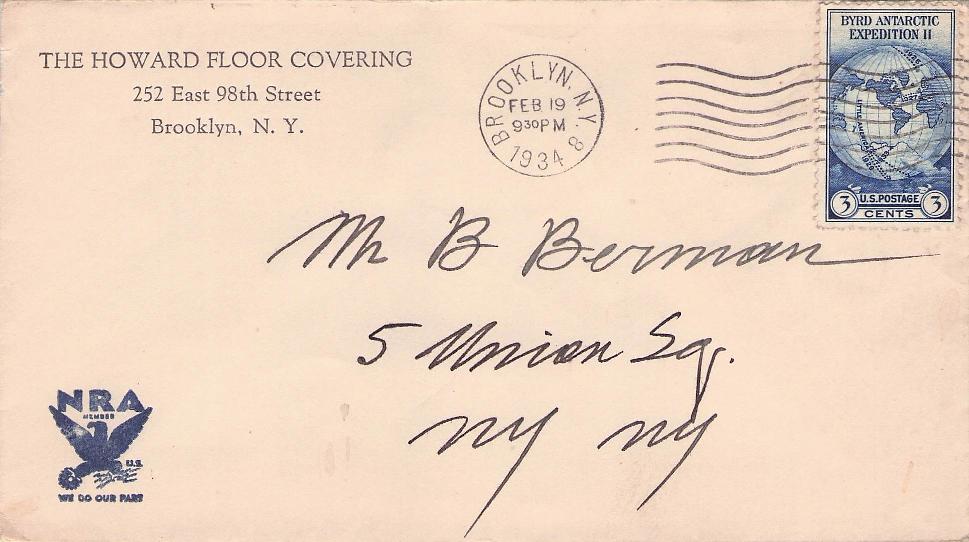 THE HOWARD FLOOR COVERING
252 East 98th Street
Brooklyn, N. Y.
BROOKLYN, N.Y.
FEB 19
930PM
1934
8
BYRD ANTARCTIC
EXPEDITION II
LITTLE AMERICA
U.S. POSTAGE
3 CENTS 3
Mr B Berman
5 Union Sq.
NY NY
NRA
MEMBER
U.S.
WE DO OUR PART